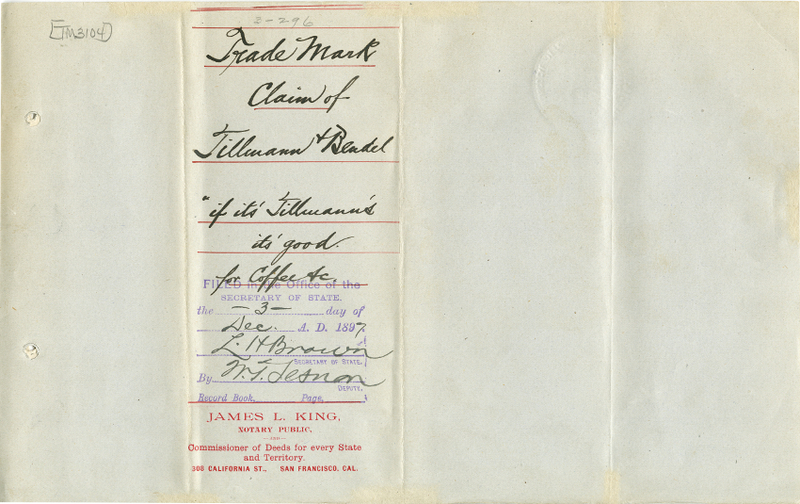 TM3104
2-296
Trade Mark
Claim of
Tillmann & Bendel
"if its' Tillmann's
its' good.
for Coffee &c.
FILED in the Office of the
SECRETARY OF STATE.
the -3- day of
Dec. A. D. 1897
L. H Brown
SECRETARY OF STATE.
By W. T.
DEPUTY.
Record Book, Page,
JAMES L. KING,
NOTARY PUBLIC,
AND
Commissioner of Deeds for every State
and Territory.
308 CALIFORNIA ST., SAN FRANCISCO, CAL.